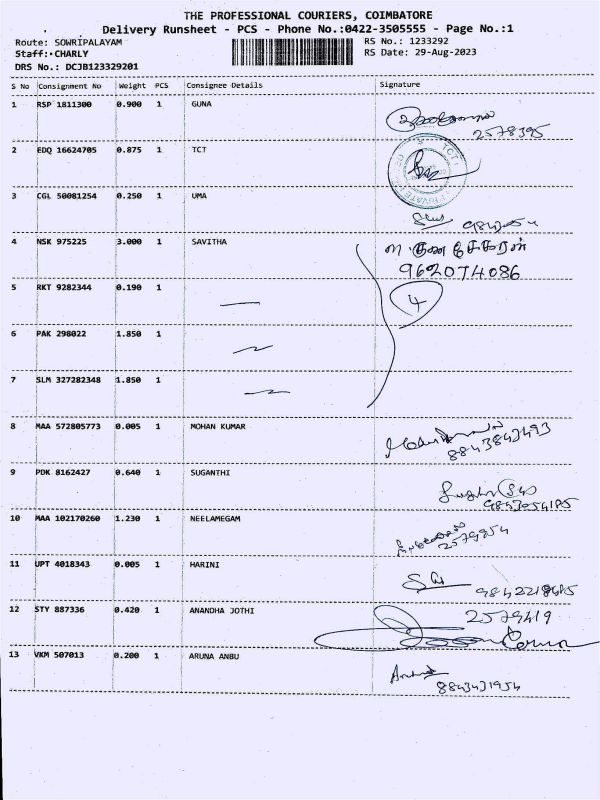 THE PROFESSIONAL COURIERS, COIMBATORE
Delivery Runsheet - PCS - Phone No.:0422-3505555 - Page No.:1
Route: SOWRIPALAYAM RS No.: 1233292
Staff: CHARLY RS Date: 29-Aug-2023
DRS No.: DCJB123329201
S No Consignment No Weight PCS Consignee Details Signature
1 RSP 1811300 0.900 1 GUNA
2578395
2 EDQ 16624705 0.875 1 TCT
3 CGL 50081254 0.250 1 UMA
4 NSK 975225 3.000 1 SAVITHA
ம. குணசேகரன்
962074086
5 RKT 9282344 0.190 1
4
6 PAK 298022 1.850 1
7 SLM 327282348 1.850 1
8 MAA 572805773 0.005 1 MOHAN KUMAR
9 PDK 8162427 0.640 1 SUGANTHI
10 MAA 102170260 1.230 1 NEELAMEGAM
2579954
11 UPT 4018343 0.005 1 HARINI
12 STY 887336 0.420 1 ANANDHA JOTHI
2579419
13 VKM 507013 0.200 1 ARUNA ANBU
8843431954